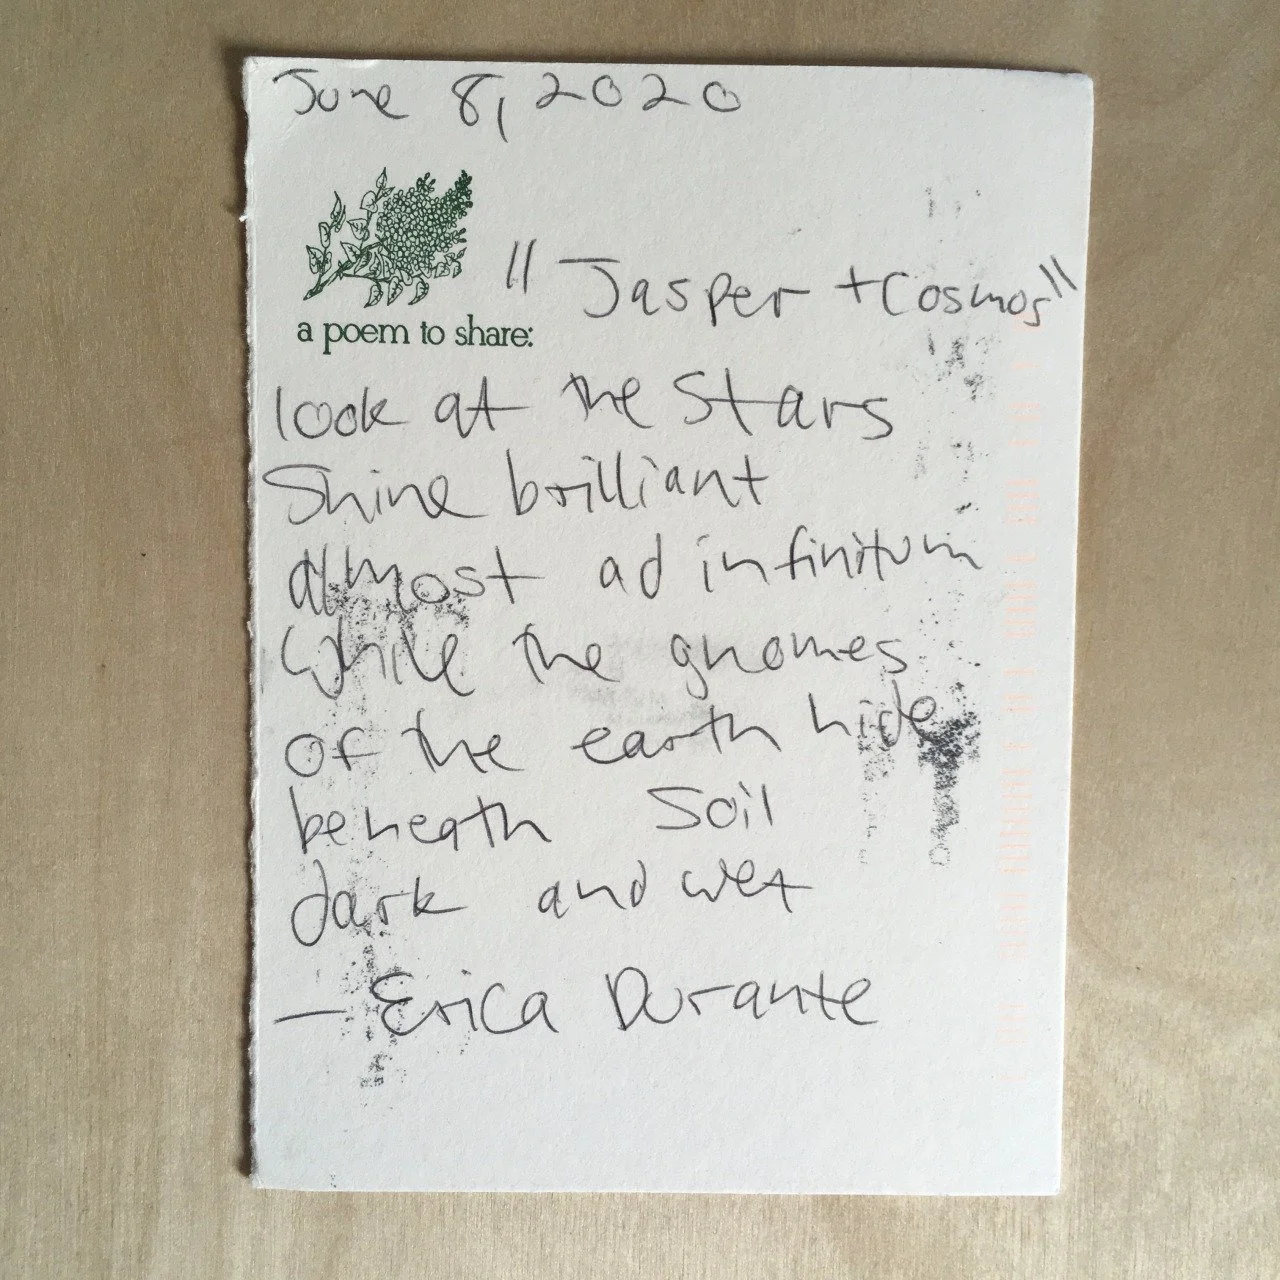 June 8, 2020
"Jasper + Cosmos"
a poem to share:
look at the stars
Shine brilliant
almost ad infinitum
While the gnomes
of the earth hide
beneath Soil
dark and wet
— Erica Durante